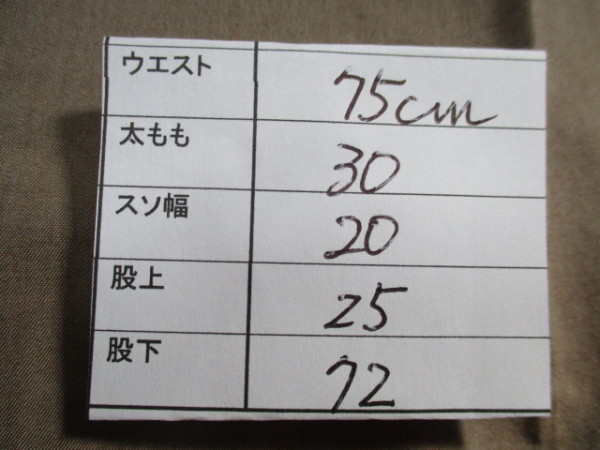 ウエスト 75cm
太もも 30
スソ幅 20
股上 25
股下 72